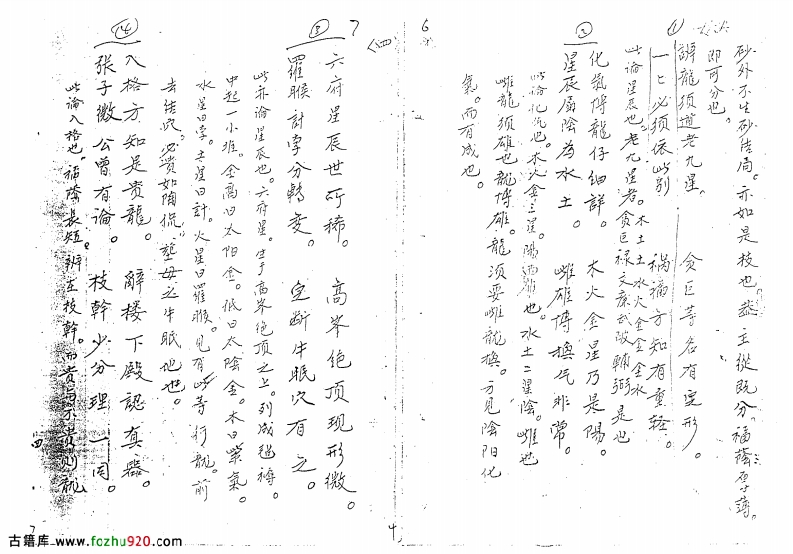 砂外不生砂结局。亦如是枝也。盖主從既分。福蔭厚薄。
即可分也。
①
辨龍須道老九星。 貪巨等名有变形。
一一必須依此别 禍福方知有重轻。
此論星辰也。老九星者。貪巨禄文廉武破輔弼 是也
木土土水火金金金水
②
化氣博龍仔细詳。 木火金星乃是陽。
星辰属陰為水土。 雌雄博换气非常。
此論化氣也。木火金三星陽 雄也。水土二星陰。雌也
雌龍须雄龍博。雄龍须要雌龍换。方見陰阳化
氣。而有成也。
6
7
〈四〉
③
六府星辰世所稀。 高峯绝顶现形微。
羅睺計孛分轉变。 定断牛眠穴有之。
此亦論星辰也。六府星。生于高峯绝頂之上。列成
中起一小堆。金高曰太阳金。低曰太陰金。木曰紫氣。
水星曰孛。土星曰計。火星曰羅睺。見有此等行龍。前
去结穴。必贵如陶侃 葬母之牛眠地也。
④
入格方知是贵龍。 辭楼下殿認真器。
張子微公曾有論。 枝幹少分理一同。
此論入格也。福蔭長短。辨在枝幹。而贵 不贵则龍
四
7
4
古籍库 www.fozhu920.com